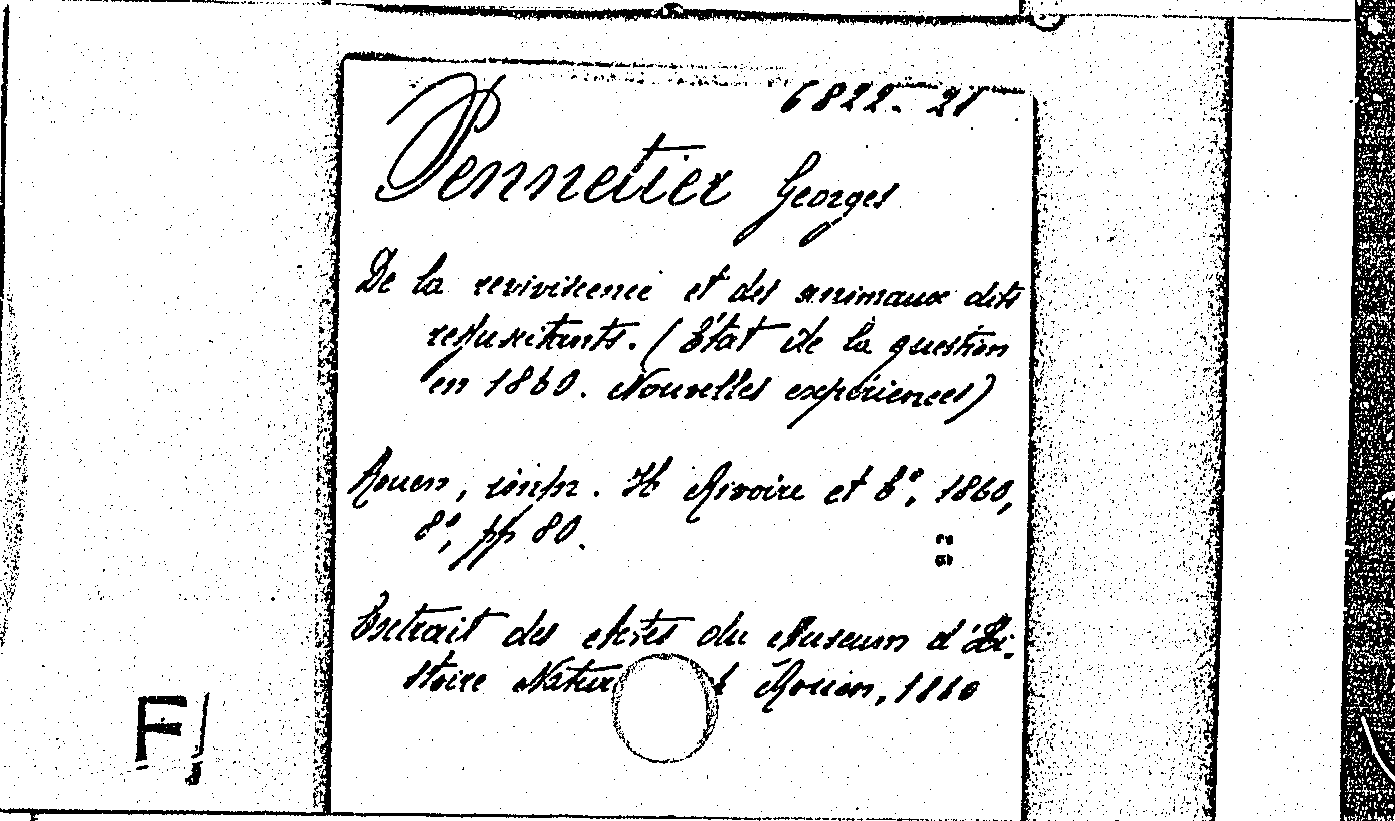 6822-21
Pennetier Georges
De la reviviscence et des animaux dits
ressuscitants. (État de la question
en 1860. Nouvelles expériences)
Rouen, impr. H Rivoire et Cº, 1860,
8º, pp 80.
Extrait des Actes du Museum d'Hi-
stoire Natur Rouen, 1860
F